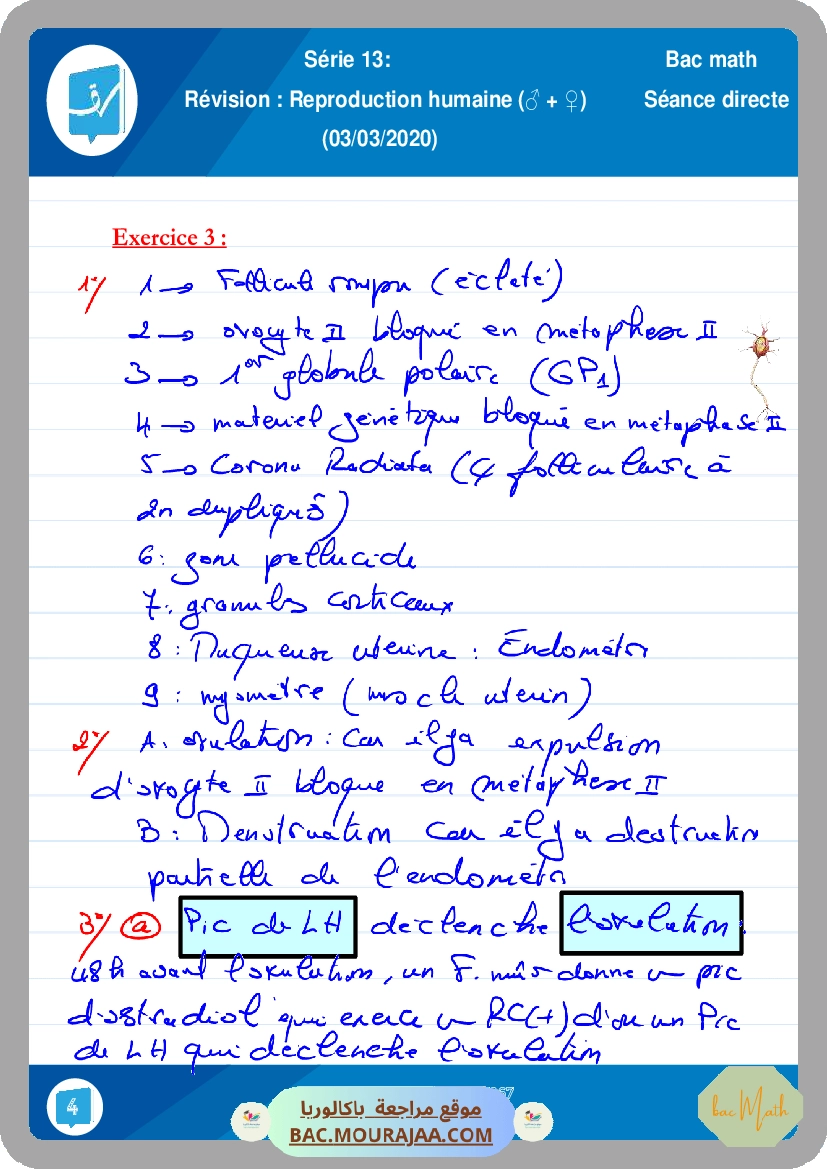 Série 13:
Bac math
Révision : Reproduction humaine (♂ + ♀)
Séance directe
(03/03/2020)
Exercice 3 :
1°/ 1 → Follicule rompu (éclaté)
2 → ovocyte II bloqué en métaphase II
3 → 1er globule polaire (GP1)
4 → materiel génétique bloqué en métaphase II
5 → Corona Radiata (C folliculaire à
2n dupliqués)
6: zone pellucide
7: granules corticaux
8 : Muqueuse uterine : Endomètre
9 : myomètre (muscle uterin)
2°/ A. ovulation : Car il ya expulsion
d'ovocyte II bloque en métaphase II
B : Menstruation car il y a destruction
partielle de l'endomètre
3°/ a Pic de LH déclenche l'ovulation.
48h avant l'ovulation, un F. mûr donne un pic
d'œstradiol qui exerce un RC(+) d'ou un Pic
de LH qui déclenche l'ovulation
4
موقع مراجعة باكالوريا
BAC.MOURAJAA.COM
bac Math